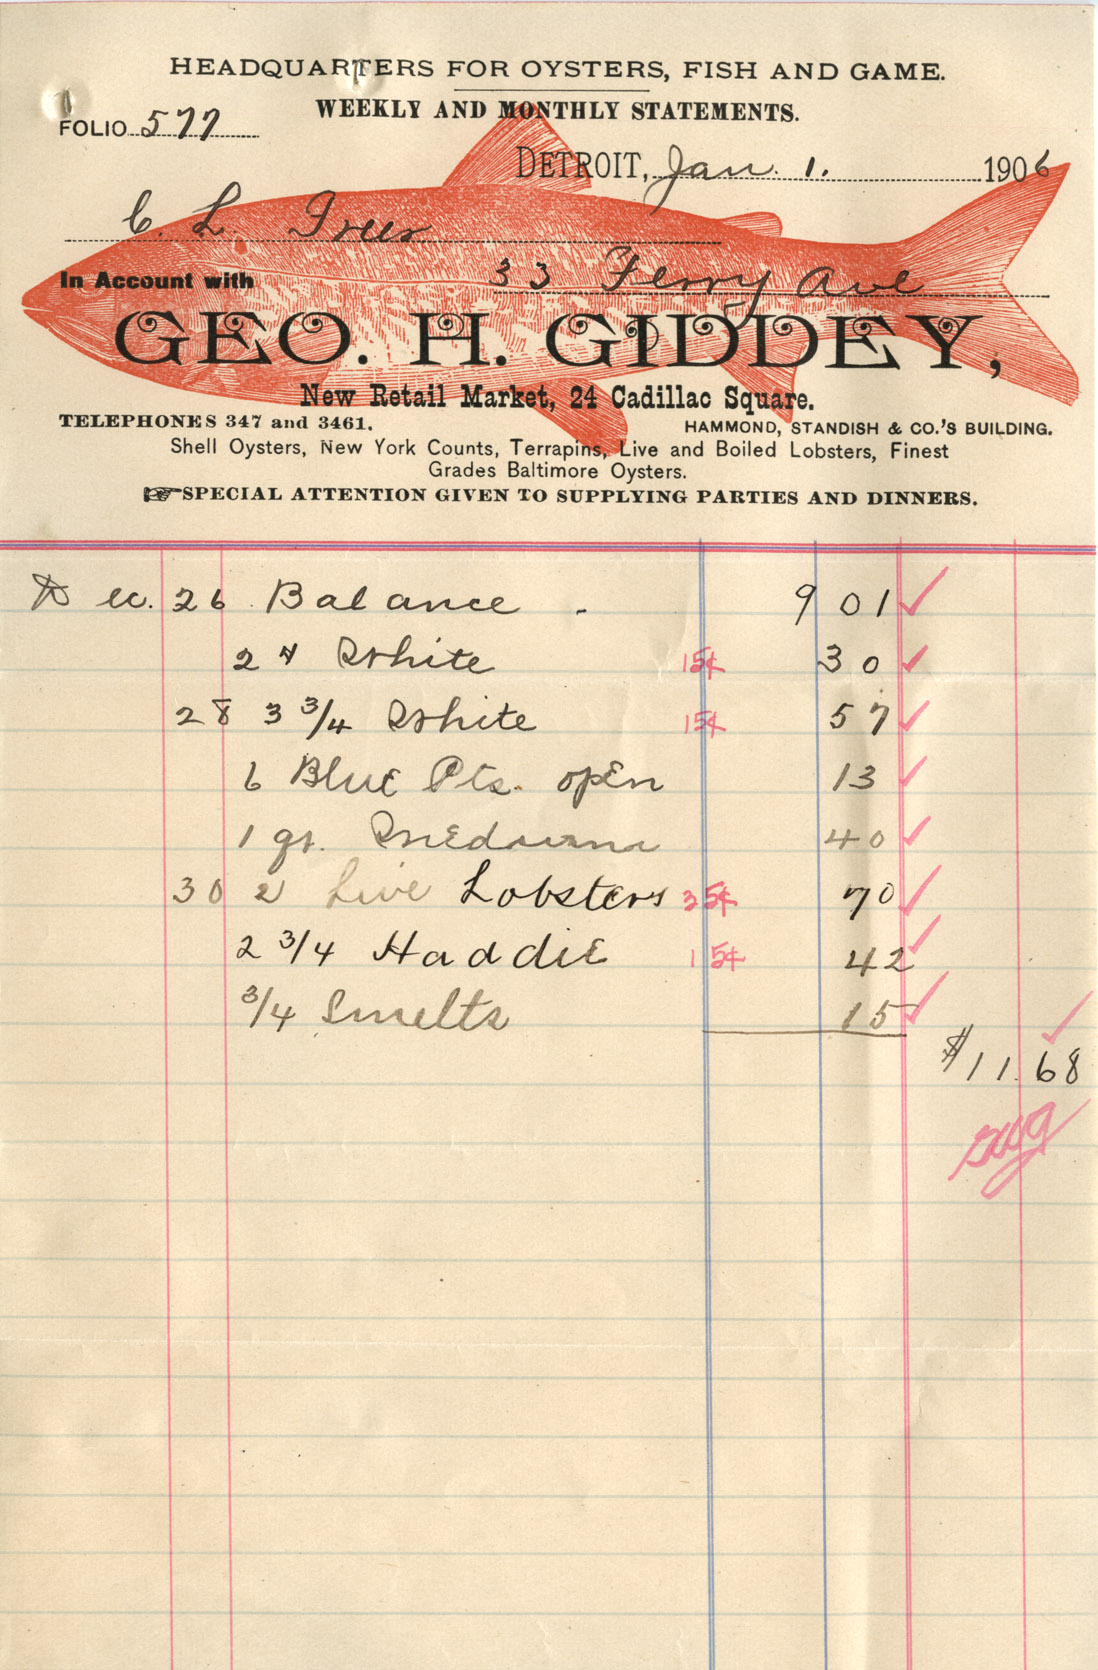 HEADQUARTERS FOR OYSTERS, FISH AND GAME.
WEEKLY AND MONTHLY STATEMENTS.
FOLIO 577
DETROIT, Jan. 1. 1906
C. L. Freer
In Account with 33 Ferry Ave
GEO. H. GIDDEY,
New Retail Market, 24 Cadillac Square.
TELEPHONES 347 and 3461. HAMMOND, STANDISH & CO.'S BUILDING.
Shell Oysters, New York Counts, Terrapins, Live and Boiled Lobsters, Finest
Grades Baltimore Oysters.
SPECIAL ATTENTION GIVEN TO SUPPLYING PARTIES AND DINNERS.
Dec. 26 Balance - 9 01
2 # White 15¢ 30
28 3 3/4 White 15¢ 57
6 Blue Pts. open 13
1 qt. Mediums 40
30 2 Live Lobsters 35¢ 70
2 3/4 Haddie 15¢ 42
3/4 Smelts 15
$11.68